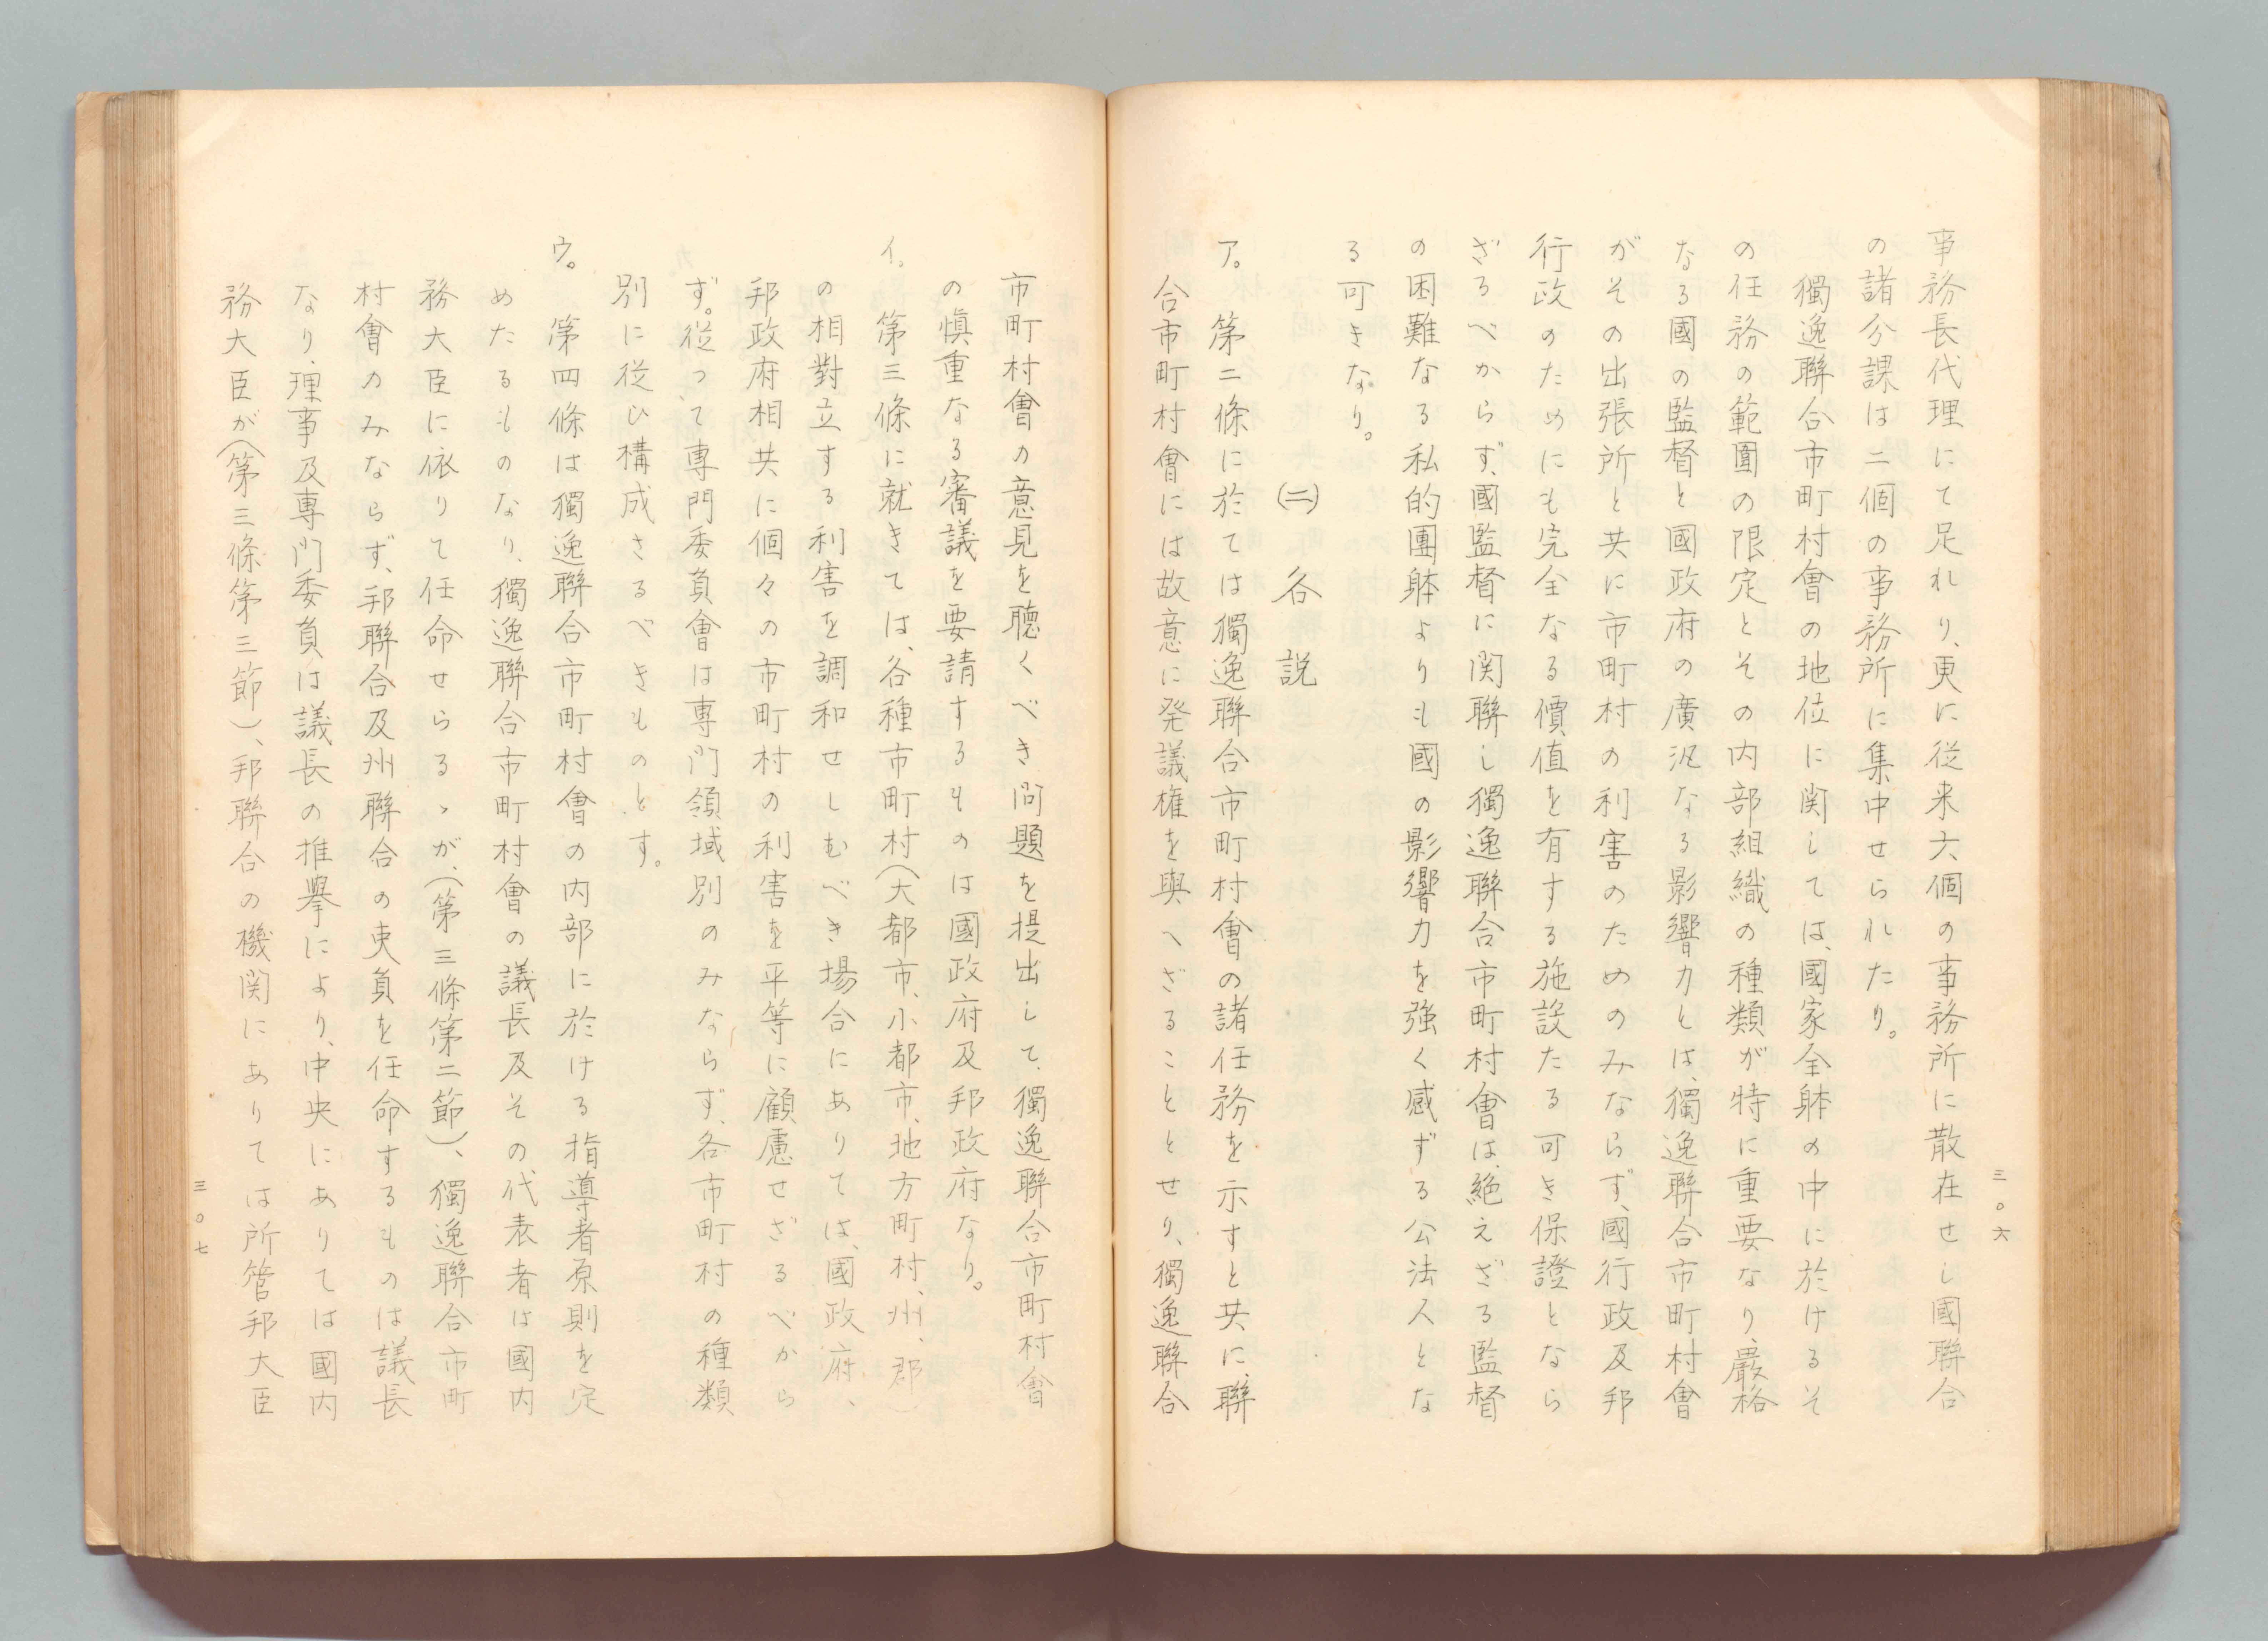 事務長代理にて足れり、更に従来六個の事務所に散在せし國聯合
の諸分課は二個の事務所に集中せられたり。
獨逸聯合市町村會の地位に関しては、國家全躰の中に於けるそ
の任務の範圍の限定とその内部組織の種類が特に重要なり、嚴格
なる國の監督と國政府の廣汎なる影響力とは、獨逸聯合市町村會
がその出張所と共に市町村の利害のためのみならず、國行政及邦
行政のためにも完全なる價值を有する施設たる可き保證となら
ざるべからず、國監督に関聯し獨逸聯合市町村會は、絶えざる監督
の困難なる私的團躰よりも國の影響力を強く感ずる公法人とな
る可きなり。
(二) 各説
ア。第二條に於ては獨逸聯合市町村會の諸任務を示すと共に、聯
合市町村會には故意に発議権を與へざることとせり、獨逸聯合
三〇六
市町村會の意見を聴くべき問題を提出して、獨逸聯合市町村會
の愼重なる審議を要請するものは國政府及邦政府なり。
イ。第三條に就きては、各種市町村(大都市、小都市、地方町村、州、郡)
の相對立する利害を調和せしむべき場合にありては、國政府、
邦政府相共に個々の市町村の利害を平等に顧慮せざるべから
ず。従って専門委員會は専門領域別のみならず、各市町村の種類
別に従ひ構成さるべきものとす。
ウ。第四條は獨逸聯合市町村會の内部に於ける指導者原則を定
めたるものなり、獨逸聯合市町村會の議長及その代表者は國内
務大臣に依りて任命せらるゝが、(第三條第二節)、獨逸聯合市町
村會のみならず、邦聯合及州聯合の吏員を任命するものは議長
なり、理事及専門委員は議長の推擧により、中央にありては國内
務大臣が(第三條第三節)、邦聯合の機関にありては所管邦大臣
三〇七